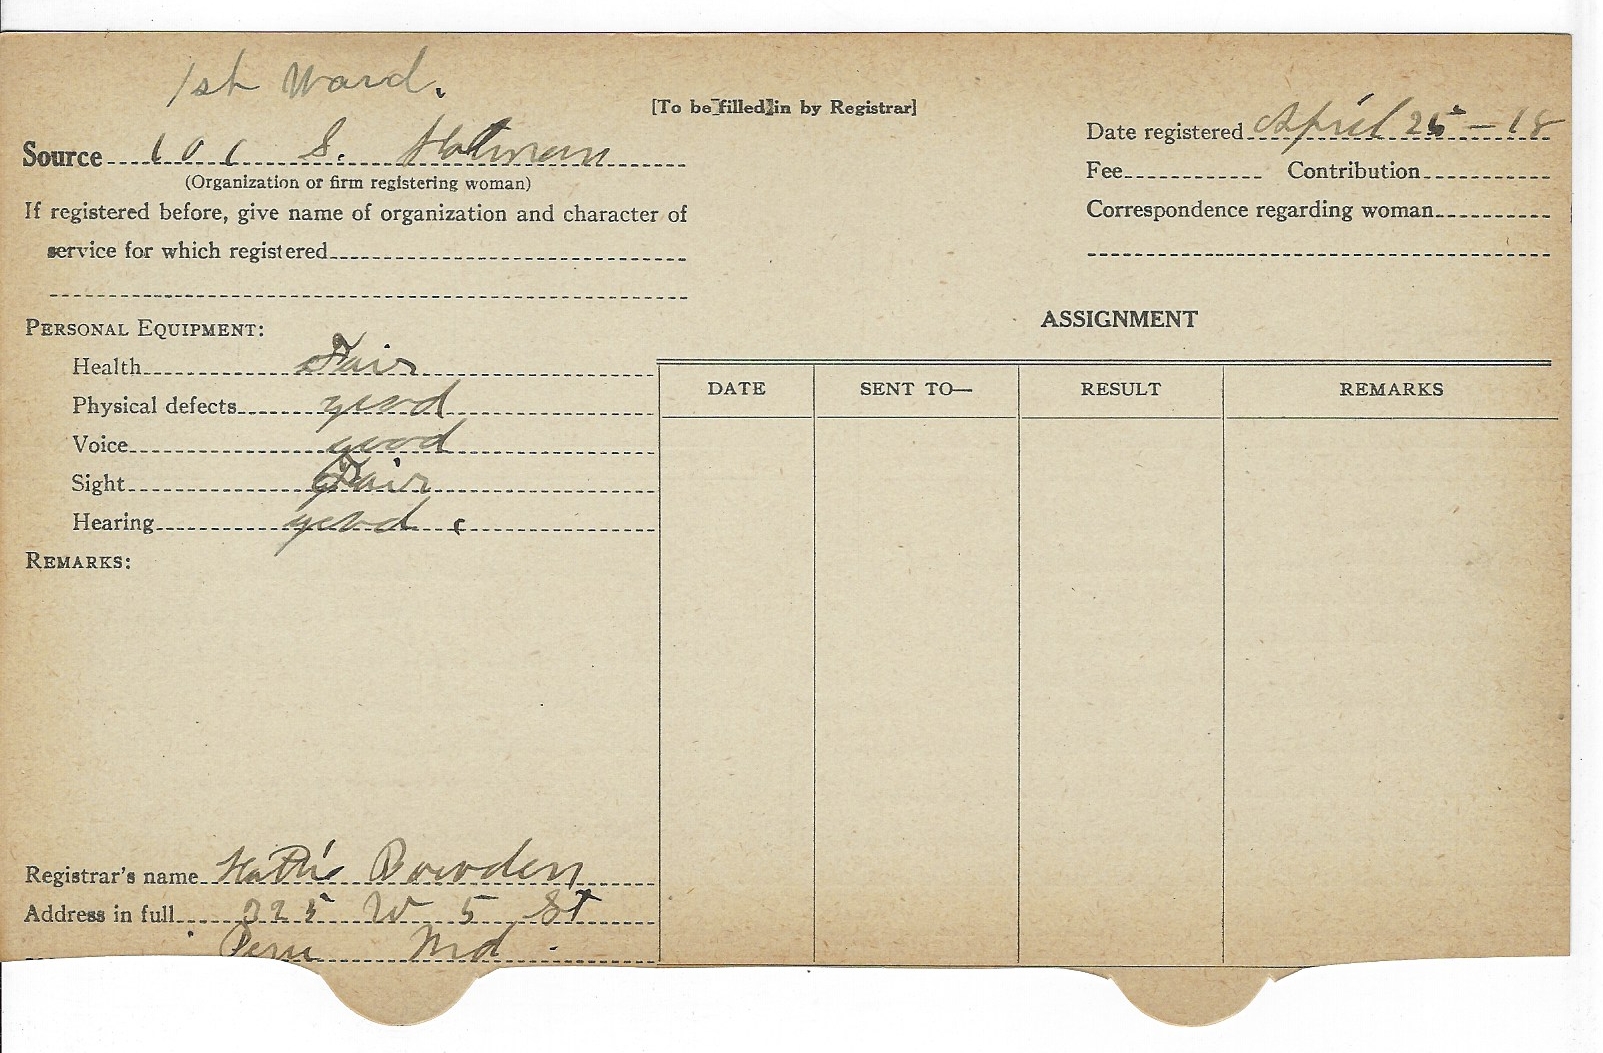 1st Ward.
[To be filled in by Registrar]
Date registered April 25 - 18
Source 101 S. Holman
(Organization or firm registering woman)
Fee Contribution
If registered before, give name of organization and character of
Correspondence regarding woman
service for which registered
PERSONAL EQUIPMENT:
ASSIGNMENT
Health Fair
DATE SENT TO— RESULT REMARKS
Physical defects good
Voice good
Sight Fair
Hearing good
REMARKS:
Registrar's name Hattie Bowden
Address in full 325 W 5 St
Peru Ind